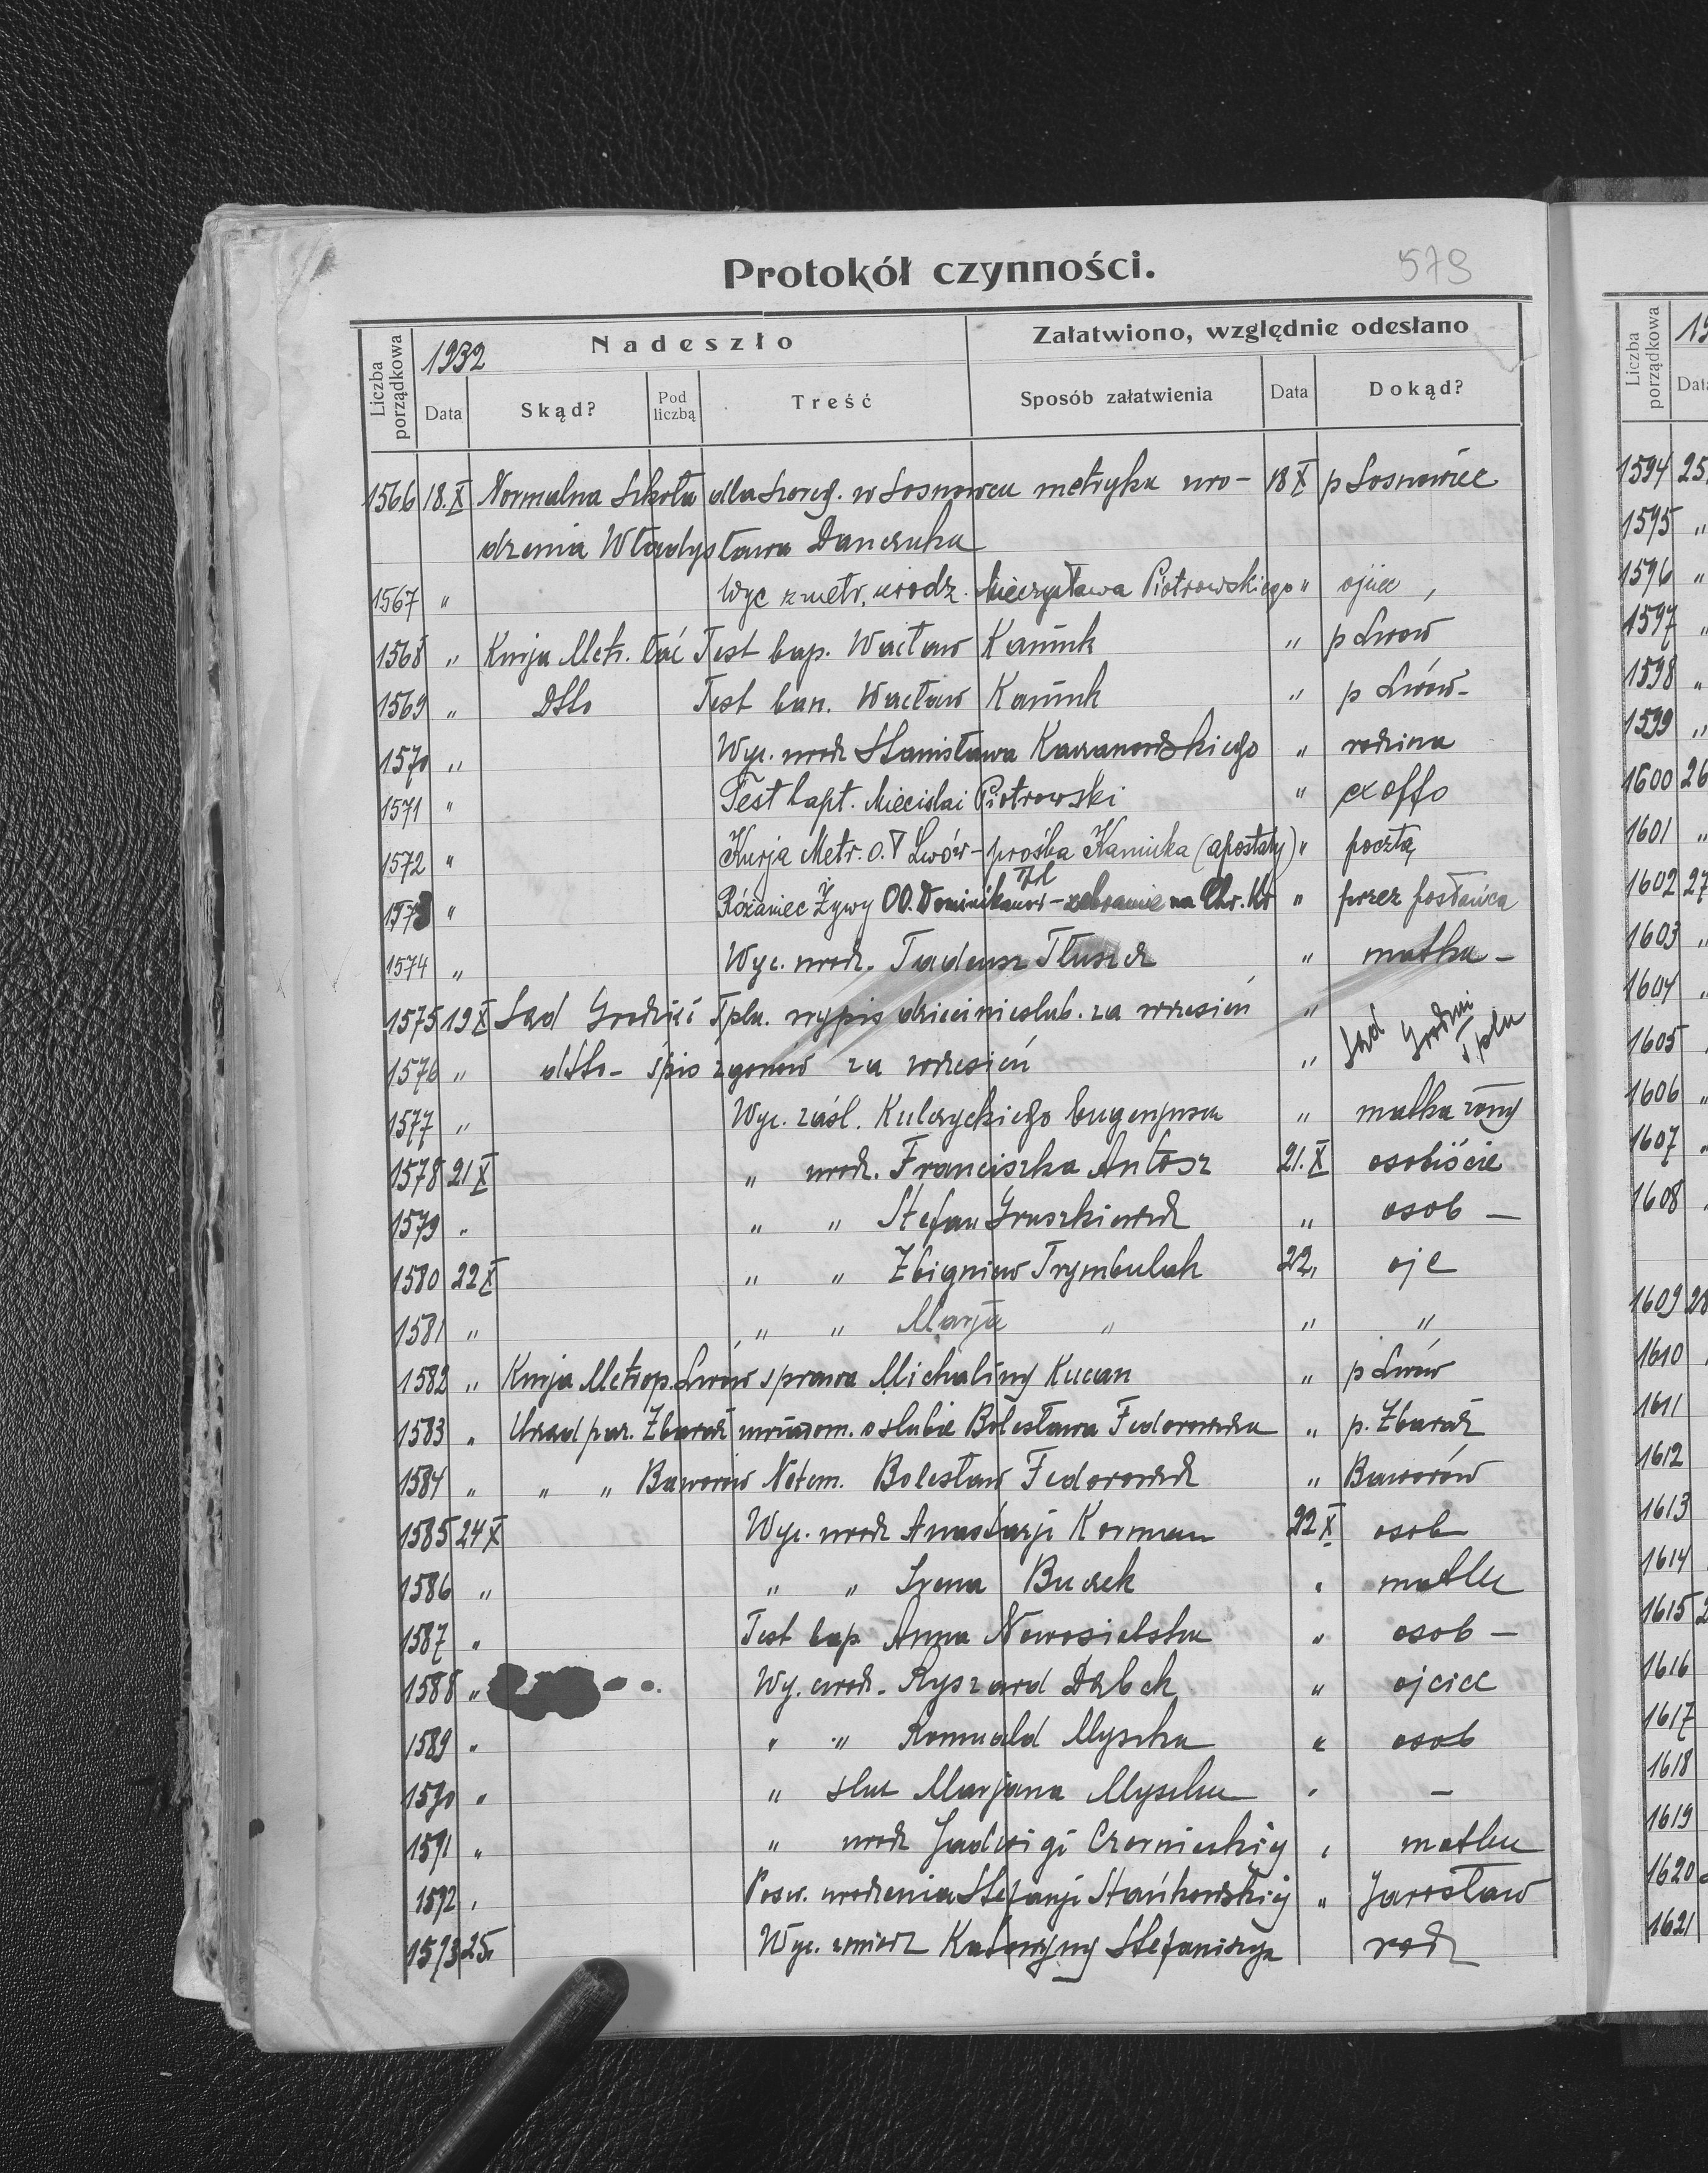 Protokół czynności.
579
Liczba porządkowa
1932
Nadeszło
Załatwiono, względnie odesłano
Data Skąd? Pod liczbą Treść Sposób załatwienia Data Dokąd?
1566 18.X Normalna Szkoła dla Szereg. w Sosnowcu metryka uro- 18 X p Sosnowiec
dzenia Władysława Danczuka
1567 " Wyc z metr. urodz. Mieczysława Piotrowskiego "
1568 " Kurja Metr. łać Test bap. Wacław Kaniuk " p Lwow
1569 " Dtto Test bap. Wacław Kaniuk " p Lwów -
1570 " Wyc. urodz Stanisława " rodzina
1571 " Test bapt. Miecislai Piotrowski " ex offo
1572 " Kurja Metr. o. Ł Lwów - prośba Kaniuka (apostaty) " pocztą
1573 " Różaniec Żywy OO. Dominikanów - zebranie na Chr. Kr " przez posłańca
1574 " Wyc. urodz. Tadeusz Tłuszcz " matka -
1575 19 X Sąd Grodzki Tpla. wypis dzieci nieslub. za wrzesień " Sąd Grodzki Tplu
1576 " dtto - spis zgonów za wrzesień "
1577 " Wyc. zaśl. Kulczyckiego Eugenjusza " matka żony
1578 21 X " urodz. Franciszka Antosz 21.X osobiście
1579 " " " Stefan Gruszkiewicz " osob -
1580 22 X " " Zbigniew Trymbulak 22 " ojc
1581 " " " Marja " " "
1582 " Kurja Metrop. Lwów sprawa Michaliny Kucan " p Lwów
1583 " Urząd par. Zbaraż uwiadom. o slubie Bolesława Fedorowicza " p. Zbaraż
1584 " " " Baworów Notem. Bolesław Fedorowicz " Baworów
1585 24 X Wyc. urodz Anastazji Korman 22 X osob
1586 " " " Irena Buczek " matka
1587 " Test bap Anna Nowosielska " osob -
1588 " Wy. urodz. Ryszard Dąbek " ojciec
1589 " " " Romuald Myszka " osob
1590 " " slub Marjana Myszka " -
1591 " " urodz Jadwigi Czarnieckiej " matka
1592 " Posw. urodzenia Stefanji Stańkowskiej " Jarosław
1593 25. Wyc. Katarzyny rodz
Liczba porządkowa
19
Data
1594 25
1595 "
1596 "
1597 "
1598 "
1599 "
1600 26
1601 "
1602 27
1603 "
1604 "
1605
1606 "
1607 "
1608
1609 28
1610
1611
1612
1613
1614
1615 2
1616
1617
1618
1619
1620
1621